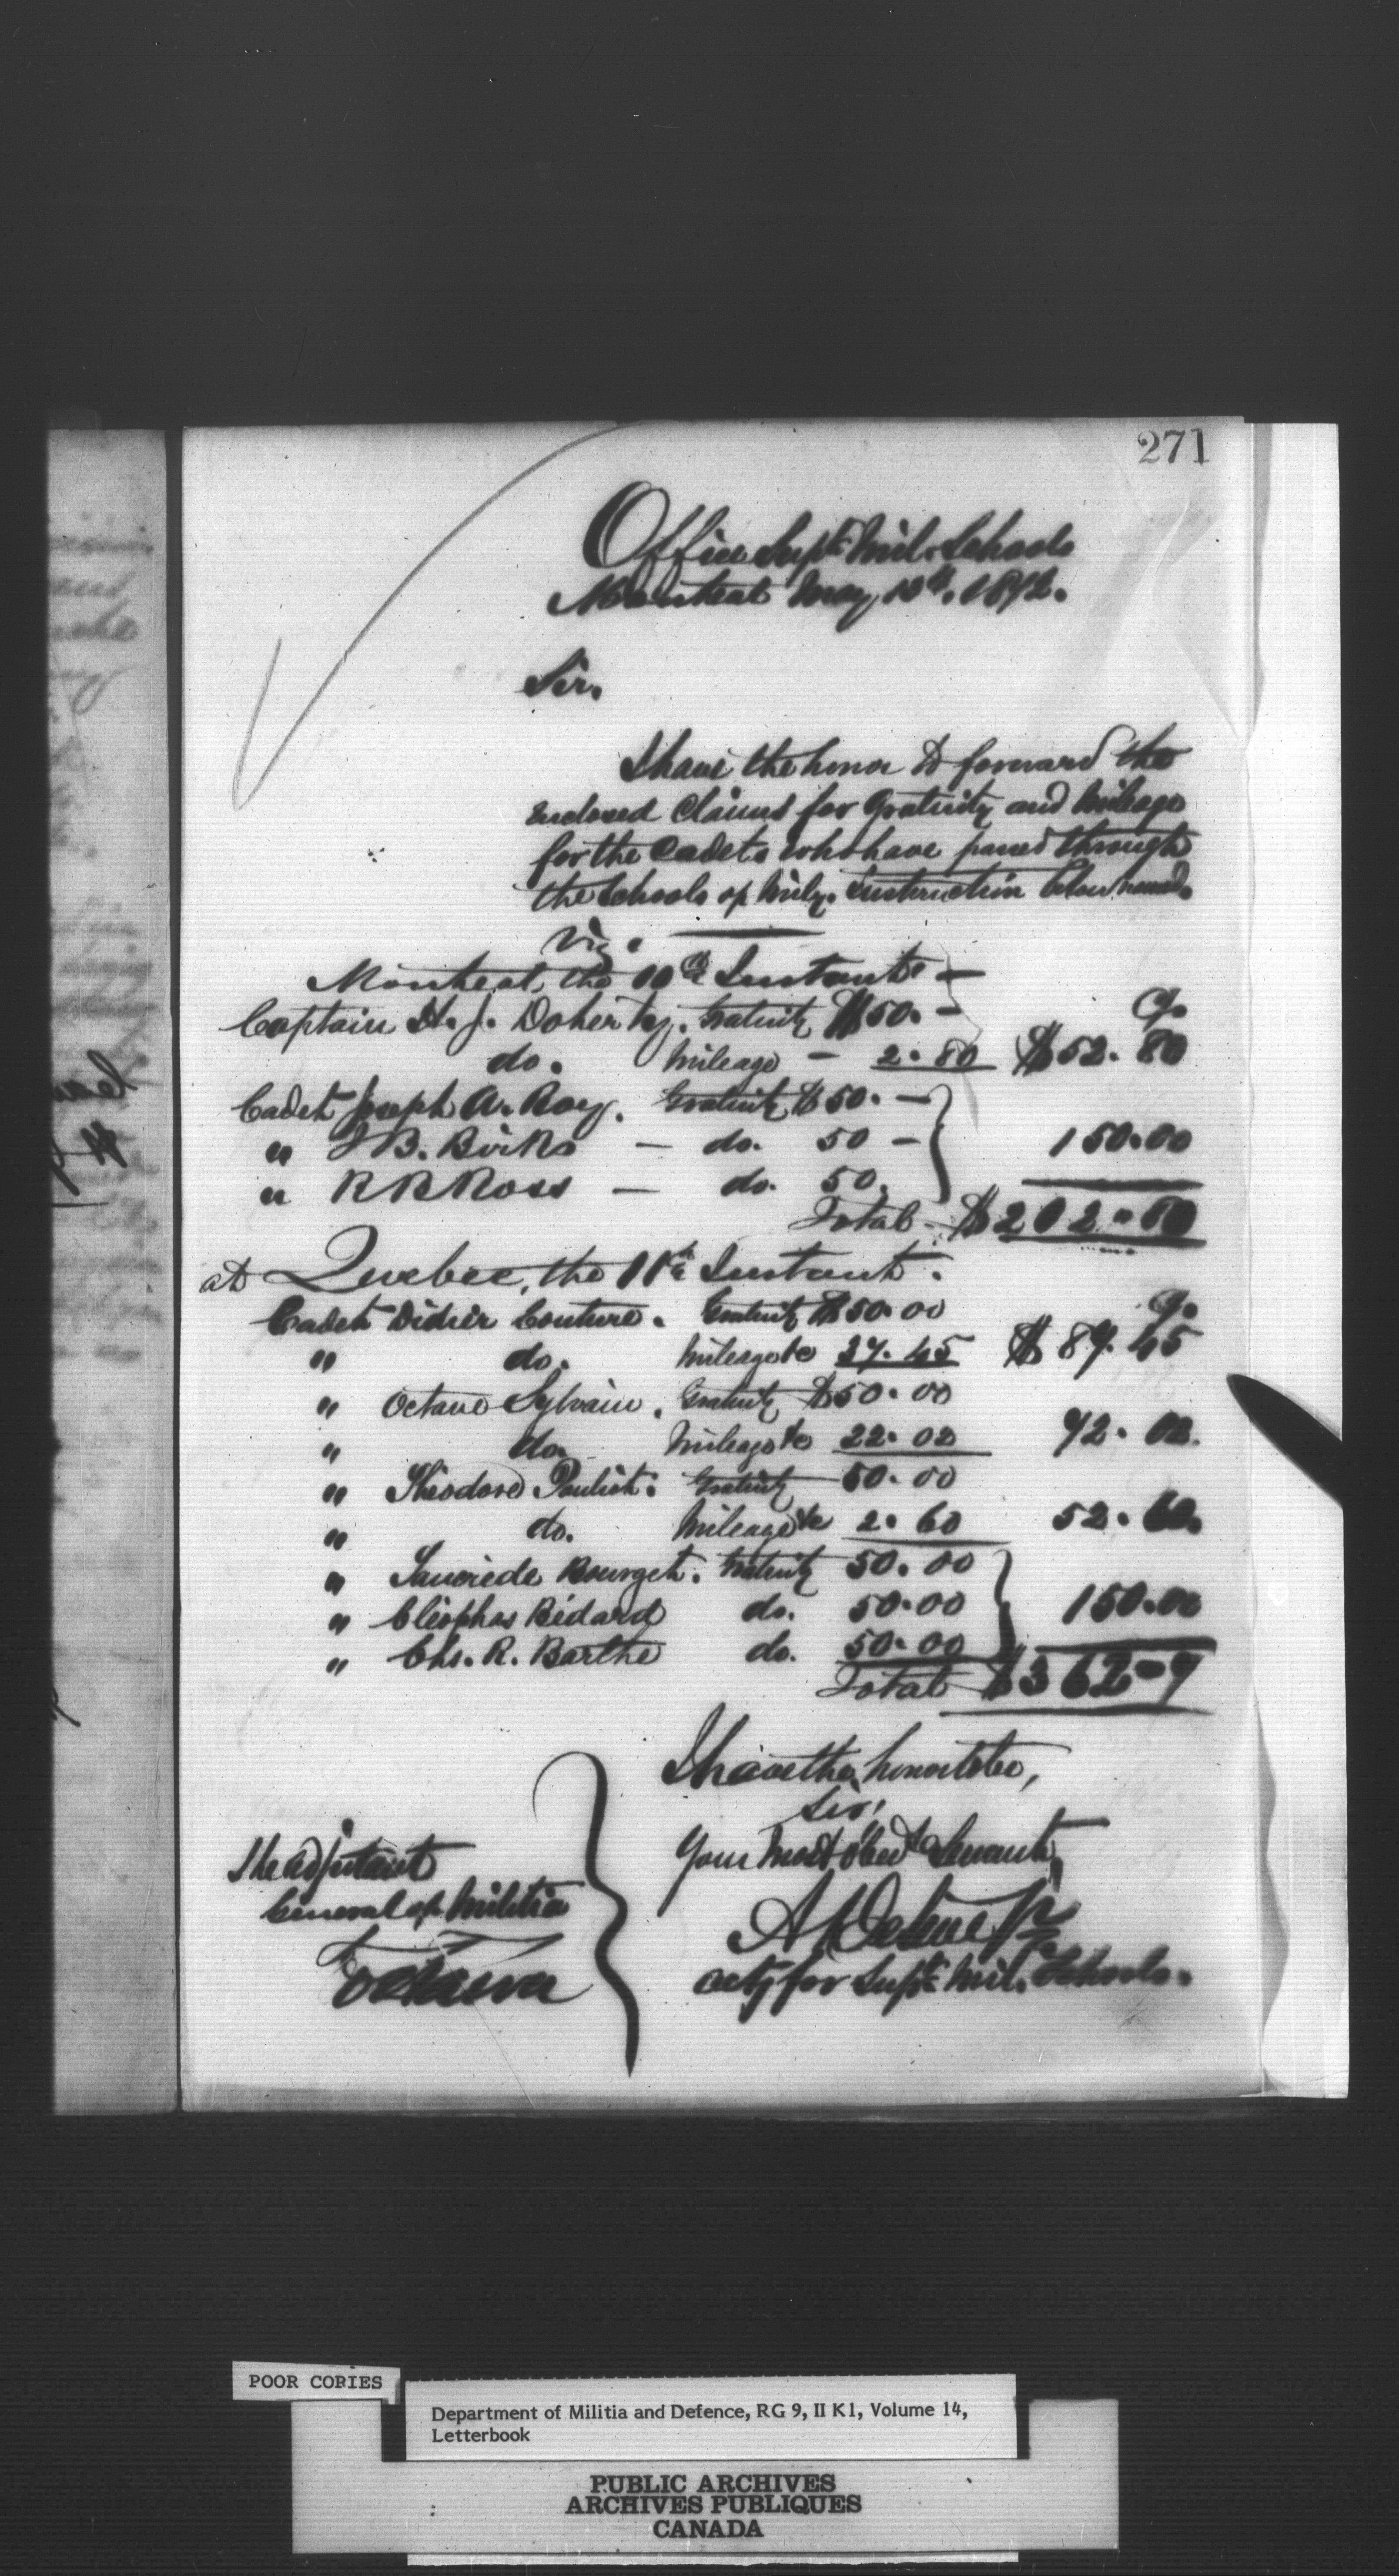 271
Office Supt. Mil. Schools
Montreal May 1872.
Sir.
I have the honor to forward the
enclosed Claims for Gratuity and Mileage
for the Cadets who have passed through
the Schools of Mily. Instruction below named.
Viz.
Montreal, the 10th Instant. —
Captain H. J. Doherty. Gratuity $50. —
do. Mileage — 2.80 $52.80
Cadet Joseph A. Roy. Gratuity $50. —
" J B. Birks — do. 50 —
150.00
" R R Ross — do. 50.
Total — $202.80
at Quebec, the 11th Instant.
Cadet Didier Couture. Gratuity $50.00
" do. Mileage &c 37.45 $87.45
" Octave Sylvain. Gratuity $50.00
" do. Mileage &c 22.02 72.02.
" Theodore Gratuity 50.00
" do. Mileage &c 2.60 52.60.
" Bourget. Gratuity 50.00
" Cléophas Bédard do. 50.00 150.00
" Chs. R. Barthe do. 50.00
Total $362-7
I have the honor to be,
Sir,
Your Most Obedt Servant,
The Adjutant
General of Militia
Ottawa
actg for Supt. Mil. Schools.
POOR COPIES
Department of Militia and Defence, RG 9, II K1, Volume 14,
Letterbook
PUBLIC ARCHIVES
ARCHIVES PUBLIQUES
CANADA